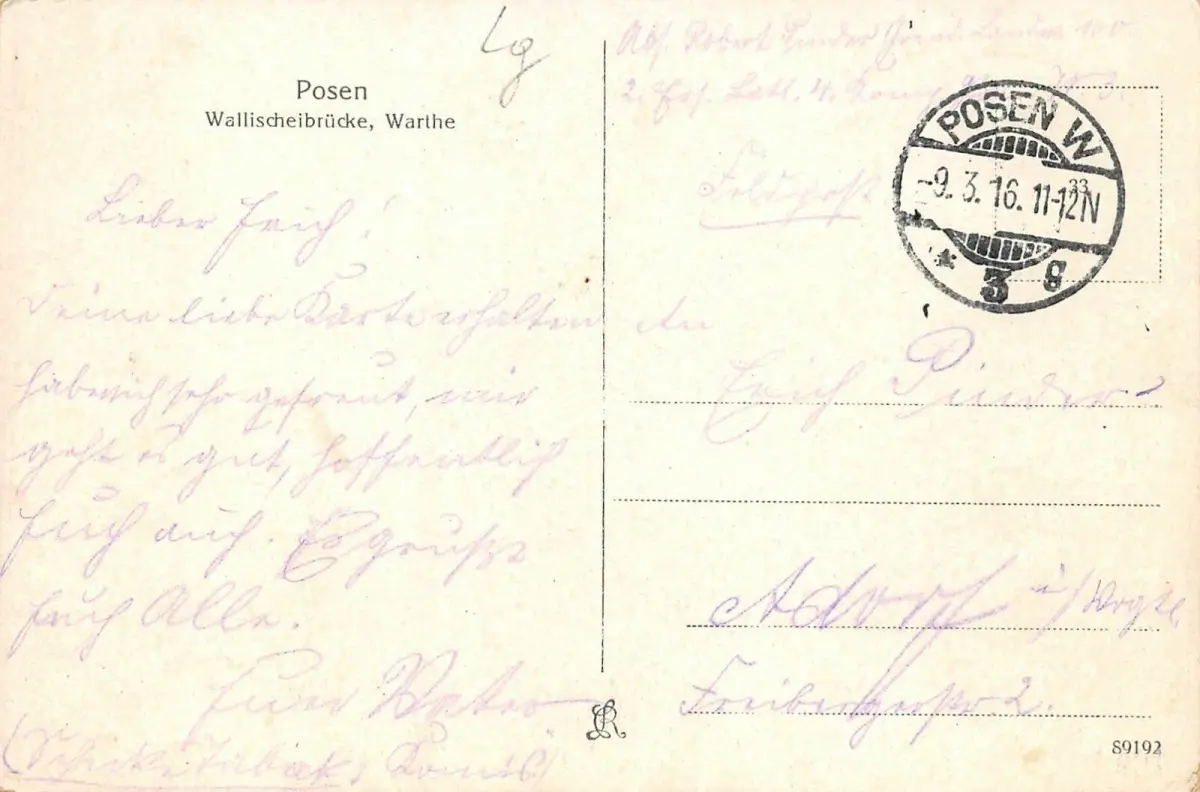 Lg
Posen
Wallischeibrücke, Warthe
Lieber Erich!
Deine liebe Karte erhalten
habe mich sehr gefreut, mir
geht es gut, hoffentlich
Euch auch. Es grüßt
Euch Alle.
Euer Vater
(Schicke Tabak,
Abs. Robert Pinder 100
2. Ers. Batl. 4. Komp.
Feldpost
POSEN W
-9. 3. 16. 11-12N
* 3 g
An
Erich Pinder
Adorf i/Vogtl.
Freibergerstr. 2.
89192